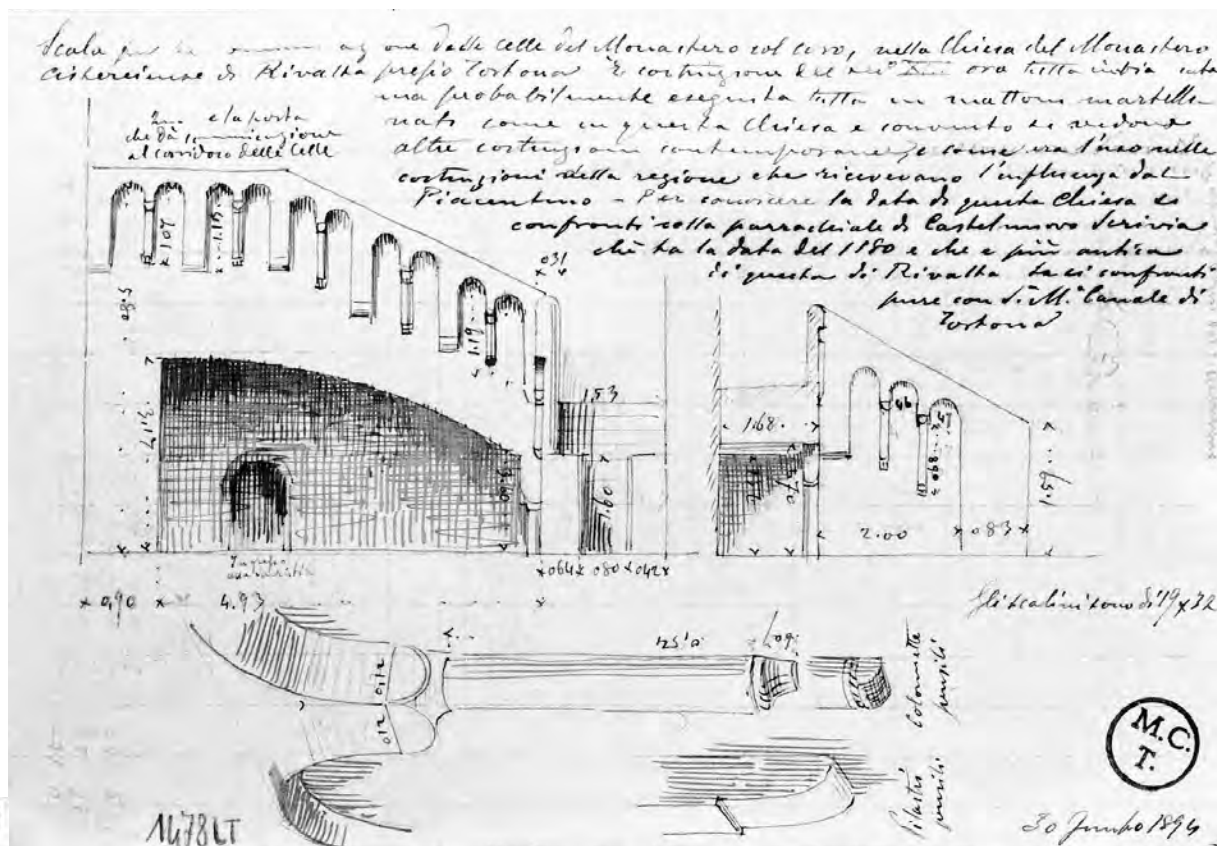 Scala per la one dalle celle del Monastero col coro, nella Chiesa del Monastero
cisterciense di Rivalta presso Tortona È costruzione del XIII ora tutta
ma probabilmente eseguita tutta in mattoni martelli
nati come in questa Chiesa e convento si vedono
altre costruzioni contemporanee, e come era l'uso nelle
costruzioni della regione che ricevevano l'influenza dal
Piacentino - Per conoscere la data di questa Chiesa si
confronti colla parrochiale di Castelnuovo Scrivia
che ha la data del 1180 e che è più antica
di questa di Rivalta. La si confronti
pure con S. M. Canale di
Tortona
e la porta
che dà comunicazione
al corridoio delle Celle
1.07
1.15
031
1.19
3.17
1.53
1.60
×064× 080 ×042×
× 0,90 × 4.93 ×
1.68
2.00 × 083 ×
1.59
Gli scalini sono di 19 x 32
0,12
012
Colonnette
pensili
Pilastri
pensili
M.C.
T.
1478LT
30 1894